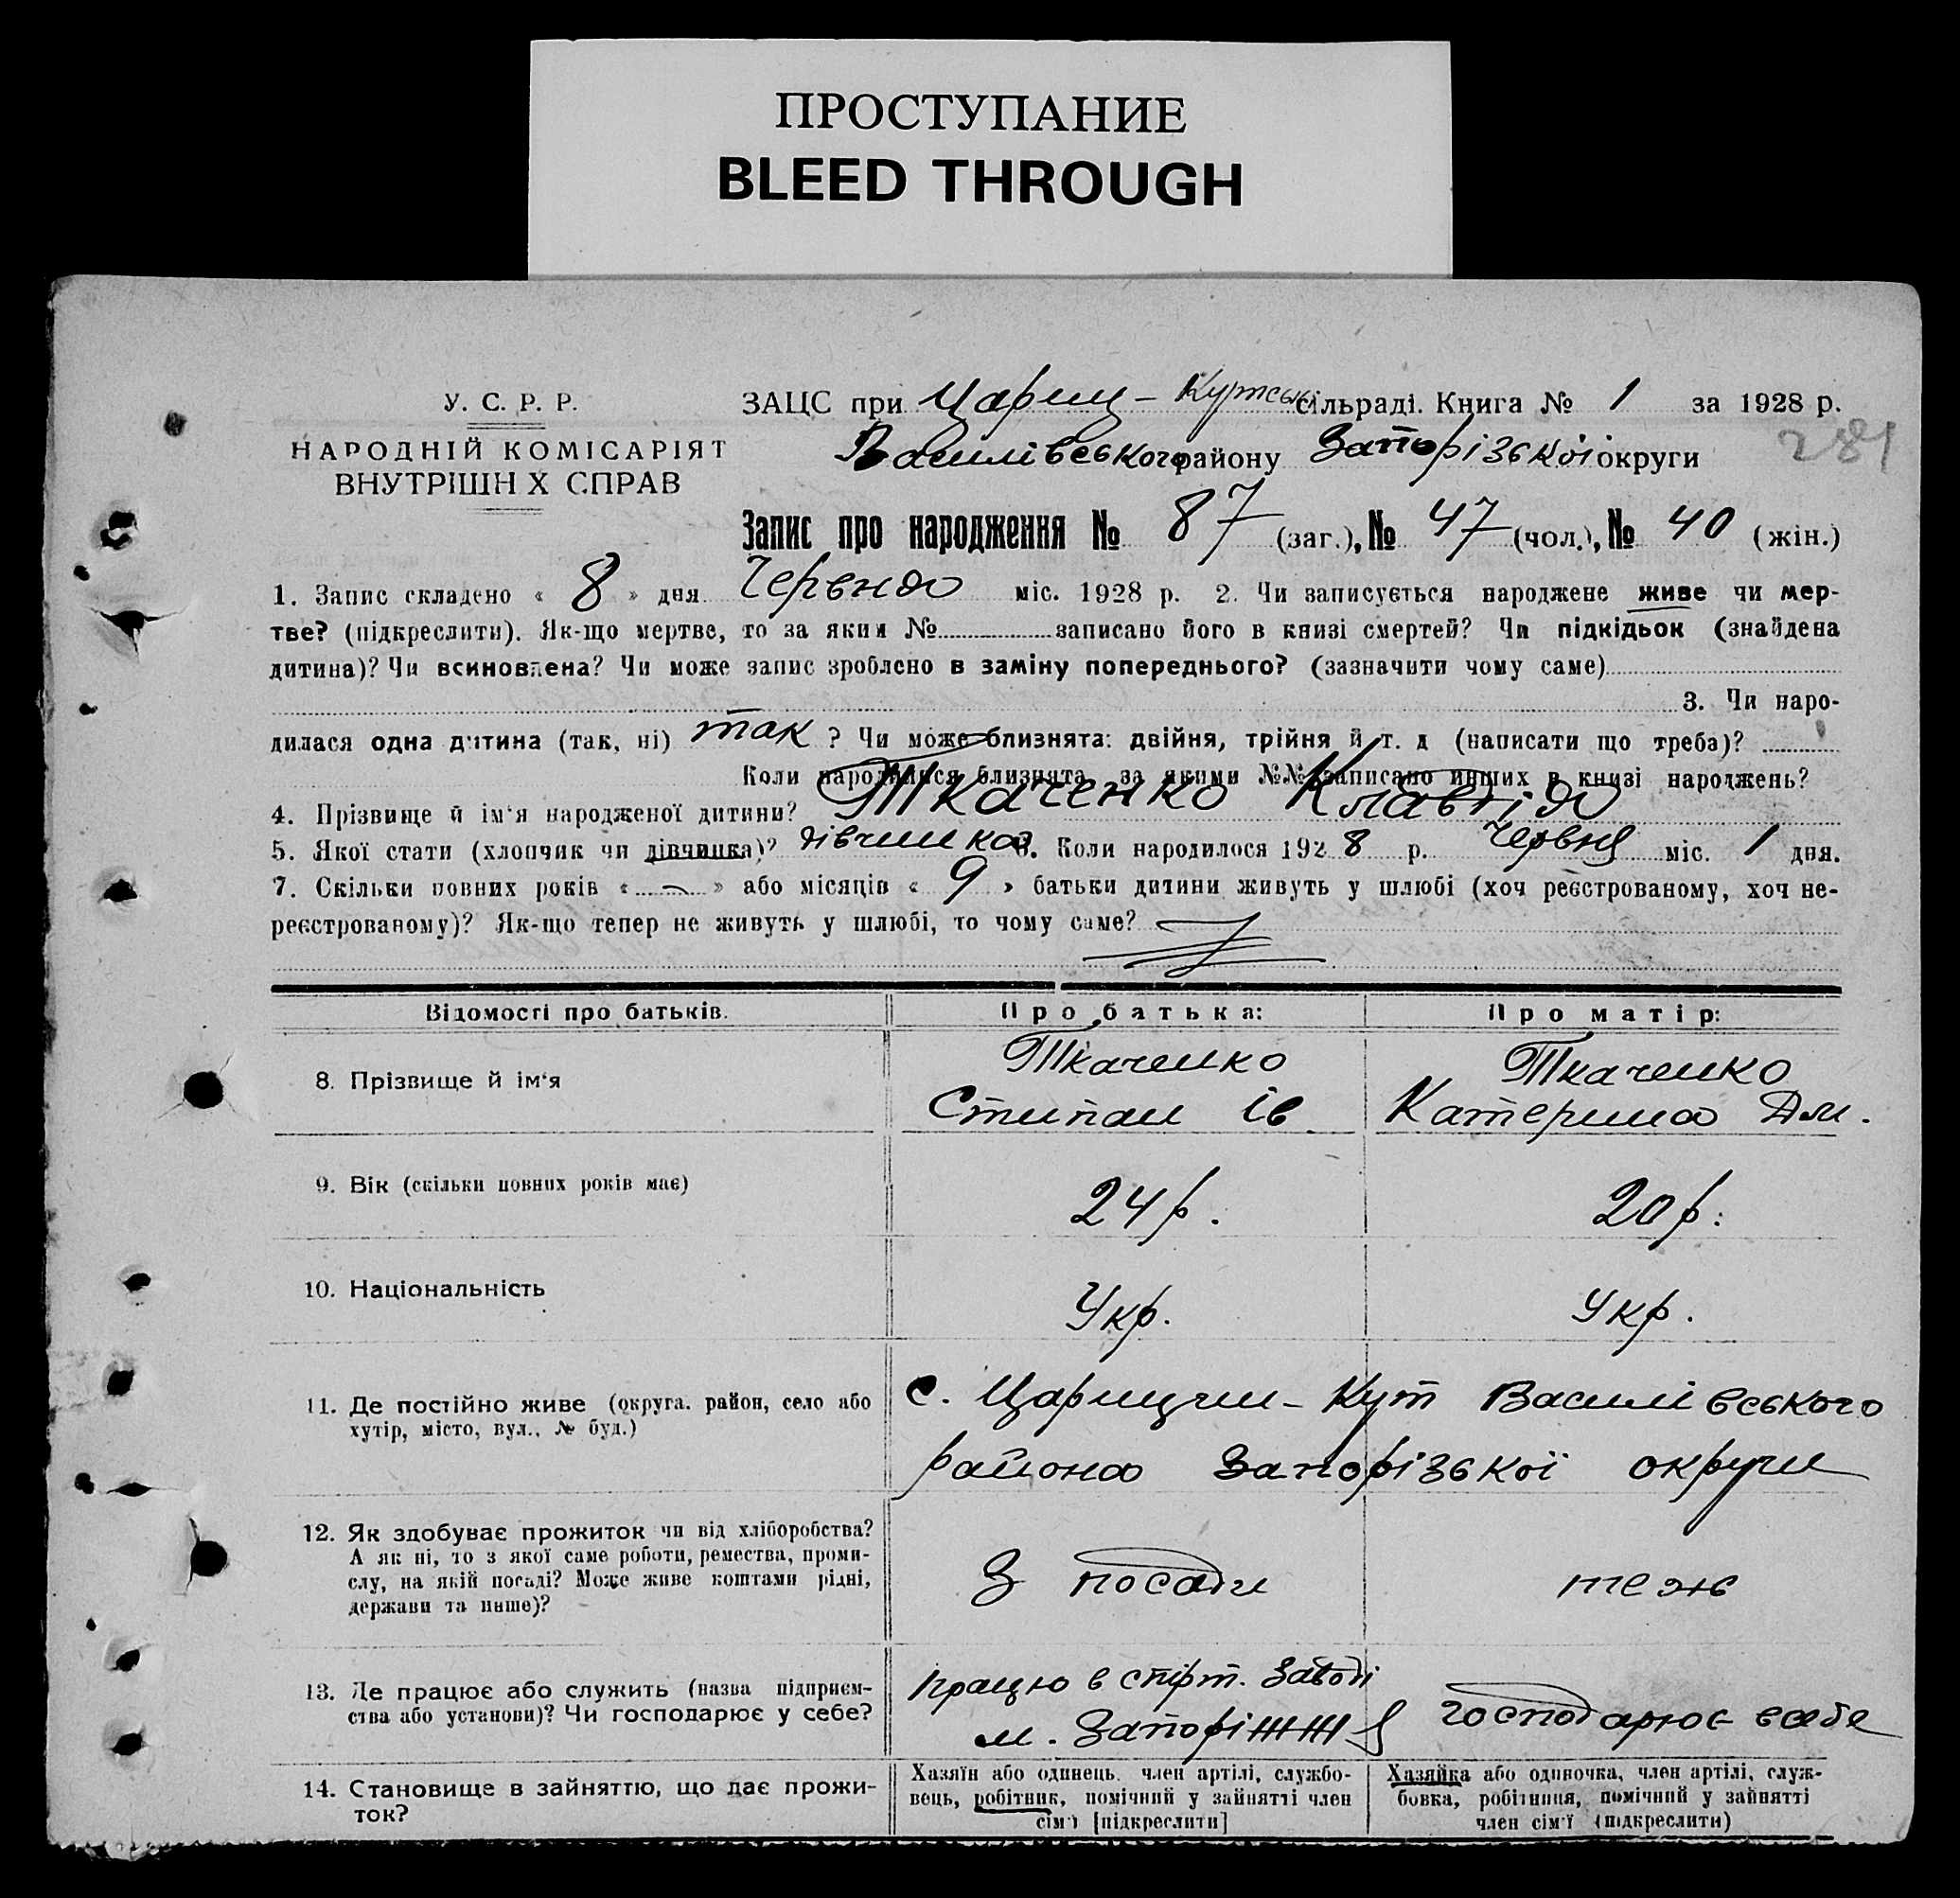 ПРОСТУПАНИЕ
BLEED THROUGH
У. С. Р. Р.
НАРОДНІЙ КОМІСАРІЯТ
ВНУТРІШН Х СПРАВ
ЗАЦС при Цариц-Кутськ сільраді. Книга № 1 за 1928 р.
281
Василівського району Запорізької округи
Запис про народження № 87 (заг.), № 47 (чол.), № 40 (жін.)
1. Запис складено « 8 » дня Червня міс. 1928 р. 2. Чи записується народжене живе чи мер-
тве? (підкреслити). Як-що мертве, то за яким № записано його в книзі смертей? Чи підкідьок (знайдена
дитина)? Чи всиновлена? Чи може запис зроблено в заміну попереднього? (зазначити чому саме)
3. Чи наро-
дилася одна дитина (так, ні) так ? Чи може близнята: двійня, трійня й т. д (написати що треба)?
Коли народилися близнята за якими №№ записано инших в книзі народжень?
4. Прізвище й ім'я народженої дитини? Ткаченко Клавдія
5. Якої стати (хлопчик чи дівчинка)? дівчинка 6. Коли народилося 1928 р. Червня міс. 1 дня.
7. Скільки повних років « — » або місяців « 9 » батьки дитини живуть у шлюбі (хоч реєстрованому, хоч не-
реєстрованому)? Як-що тепер не живуть у шлюбі, то чому саме?
Відомості про батьків.
Про батька:
Про матір:
8. Прізвище й ім'я
Ткаченко
Стипан Ів
Ткаченко
Катерина Дм.
9. Вік (скільки повних років має)
24 р.
20 р.
10. Національність
Укр.
Укр.
11. Де постійно живе (округа. район, село або
хутір, місто, вул., № буд.)
с. Царицин-Кут Василівського
района Запорізької округи
12. Як здобуває прожиток чи від хліборобства?
А як ні, то з якої саме роботи, ремества, проми-
слу, на якій посаді? Може живе коштами рідні,
держави та инше)?
З посади
теж
13. Де працює або служить (назва підприєм-
ства або установи)? Чи господарює у себе?
працю в спірт. Заводі
м. Запоріжжя
господарює в себе
14. Становище в зайняттю, що дає прожи-
ток?
Хазяїн або одинець. член артілі, службо-
вець, робітник, помічний у зайнятті член
сім'ї [підкреслити]
Хазяйка або одиночка, член артілі, служ-
бовка, робітниця, помічний у зайнятті
член сім'ї (підкреслити)